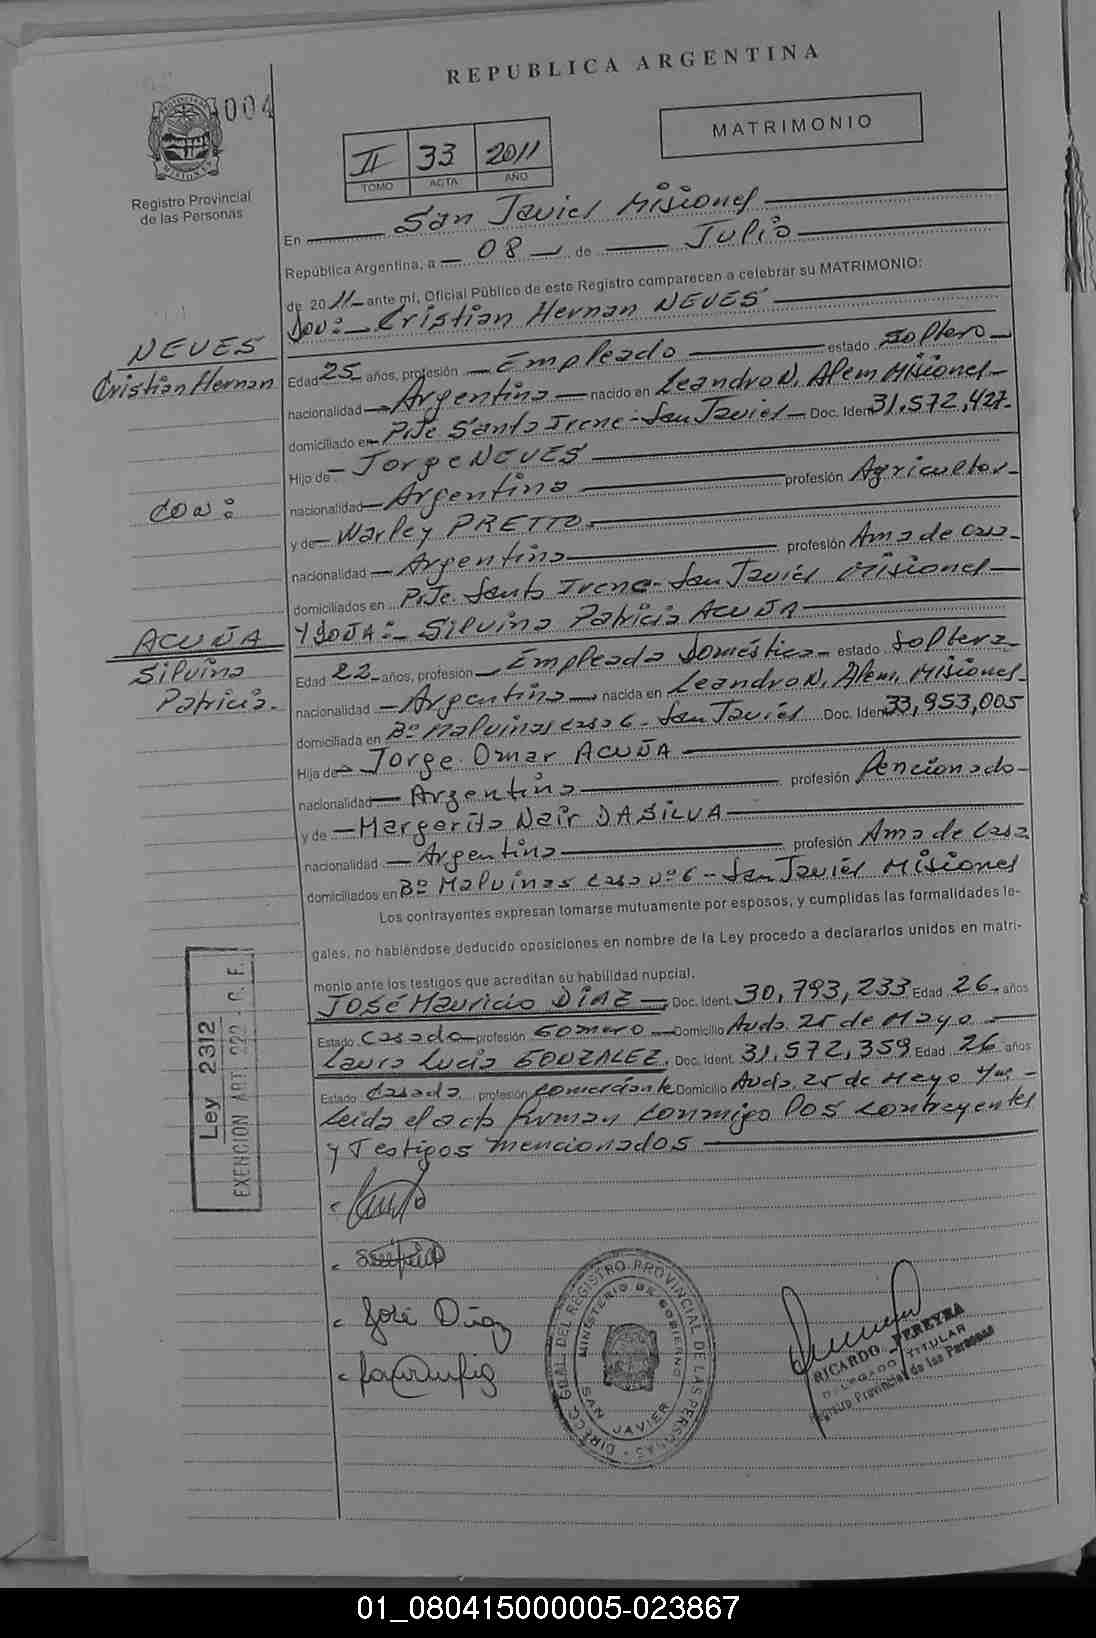 REPUBLICA ARGENTINA
004
MATRIMONIO
II 33 2011
TOMO ACTA AÑO
Registro Provincial
de las Personas
En San Javiel Misionel
República Argentina, a 08 de Julio
de 2011 ante mí, Oficial Público de este Registro comparecen a celebrar su MATRIMONIO:
Don: Cristian Hernan NEVES
NEVES
Cristian Hernan
Edad 25 años, profesión Empleado estado Soltero
nacionalidad Argentino nacido en Leandro N. Alem Misionel
domiciliado en Pje Santa Irene - San Javiel Doc. Ident 31,572,427
Hijo de Jorge NEVES
nacionalidad Argentino profesión Agricultor
con:
y de Marley PRETTO
nacionalidad Argentina profesión Ama de casa
domiciliados en Pje. Santa Irene - San Javiel Misionel
Y DOÑA: Silvina Patricia ACUÑA
ACUÑA
Silvina
Patricia.
Edad 22 años, profesión Empleada Doméstica estado Soltera
nacionalidad Argentina nacida en Leandro N. Alem, Misionel
domiciliada en Bº Malvinas casa 6 - San Javiel Doc. Ident 33,953,005
Hija de Jorge Omar ACUÑA
nacionalidad Argentino profesión Pencionado
y de Margarita Nair DASILVA
nacionalidad Argentina profesión Ama de Casa
domiciliados en Bº Malvinas casa nº 6 - San Javiel Misionel
Los contrayentes expresan tomarse mutuamente por esposos, y cumplidas las formalidades le-
gales, no habiéndose deducido oposiciones en nombre de la Ley procedo a declararlos unidos en matri-
monio ante los testigos que acreditan su habilidad nupcial.
José Mauricio DÍAZ Doc. Ident. 30,793,233 Edad 26 años
Estado Casado profesión Gomero Domicilio Avda. 25 de Mayo
Laura Lucia GONZALEZ. Doc. Ident. 31,572,359 Edad 26 años
Estado Casada profesión Comerciante Domicilio Avda. 25 de Mayo
Leida el acta firman conmigo los contrayentes
y Testigos mencionados
Ley 2312
EXENCION ART. 222 - C. F.
José Díaz
DIRECC. GRAL. DEL REGISTRO PROVINCIAL DE LAS PERSONAS
MINISTERIO DE GOBIERNO
SAN JAVIER
RICARDO PEREYRA
DELEGADO TITULAR
Registro Provincial de las Personas
01_080415000005-023867